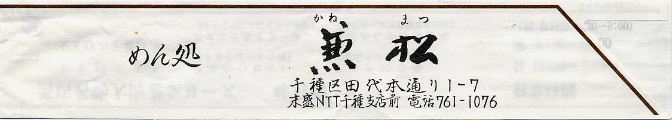 かね まつ
めん処 兼松
千種区田代本通り1-7
末盛NTT千種支店前 電話761-1076